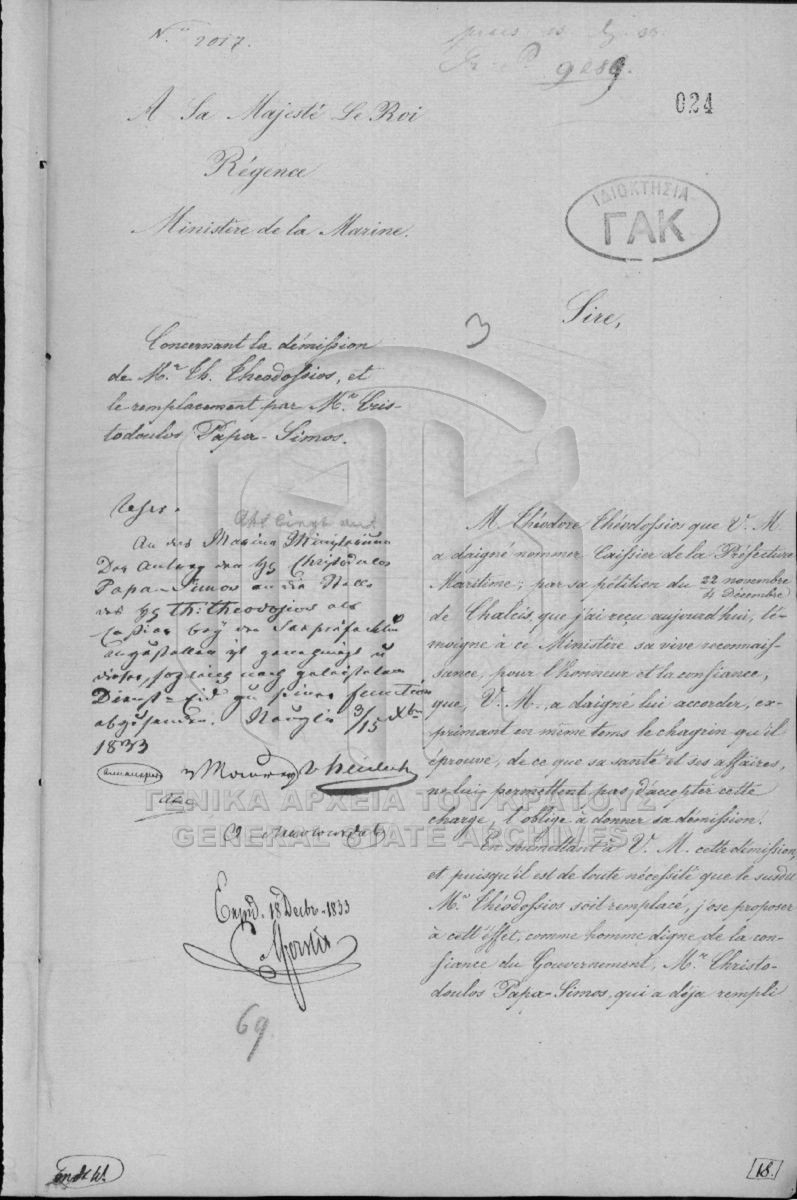 N.º 2017.
9289.
024
A Sa Majesté Le Roi
Régence
Ministère de la Marine.
ΙΔΙΟΚΤΗΣΙΑ
ΓΑΚ
3
Sire,
Concernant la démission
de M.r Th. Theodossios, et
le remplacement par M.r Cris-
todoulos Papa-Simos.
An das Marine Ministerium
Der Antrag den Hg Christodulos
Papa-Simos an die Stelle
des Hg Th: Theodosios als
Cassier bey der Seepräfectur
angestellen ist genehmigt u
dieser, sogleich nach geleistetem
Dienst-Eid zu seiner function
abzusenden. Nauplia 3/15 Xbr
1833
Expd. 18 Decbr. 1833
69
M. Théodore Théodossios que V. M.
a daigné nommer Caissier de la Préfecture
Maritime; par sa pétition du 22 novembre
4 Décembre
de Chalcis, que j'ai reçu aujourd'hui, té-
moigne à ce Ministère sa vive reconnais-
sance, pour l'honneur et la confiance,
que, V. M., a daigné lui accorder, ex-
primant en même tems le chagrin qu'il
éprouve, de ce que sa santé et ses affaires,
ne lui permettent pas d'accepter cette
charge, l'oblige à donner sa démission.
En submettant à V. M. cette démission,
et puisqu'il est de toute nécessité que le susdit
M.r Théodossios soit remplacé, j'ose proposer
à cett'éffet, comme homme digne de la con-
fiance du Gouvernement, M.r Christo-
doulos Papa-Simos, qui a déja rempli
ΓΕΝΙΚΑ ΑΡΧΕΙΑ ΤΟΥ ΚΡΑΤΟΥΣ
GENERAL STATE ARCHIVES
18.